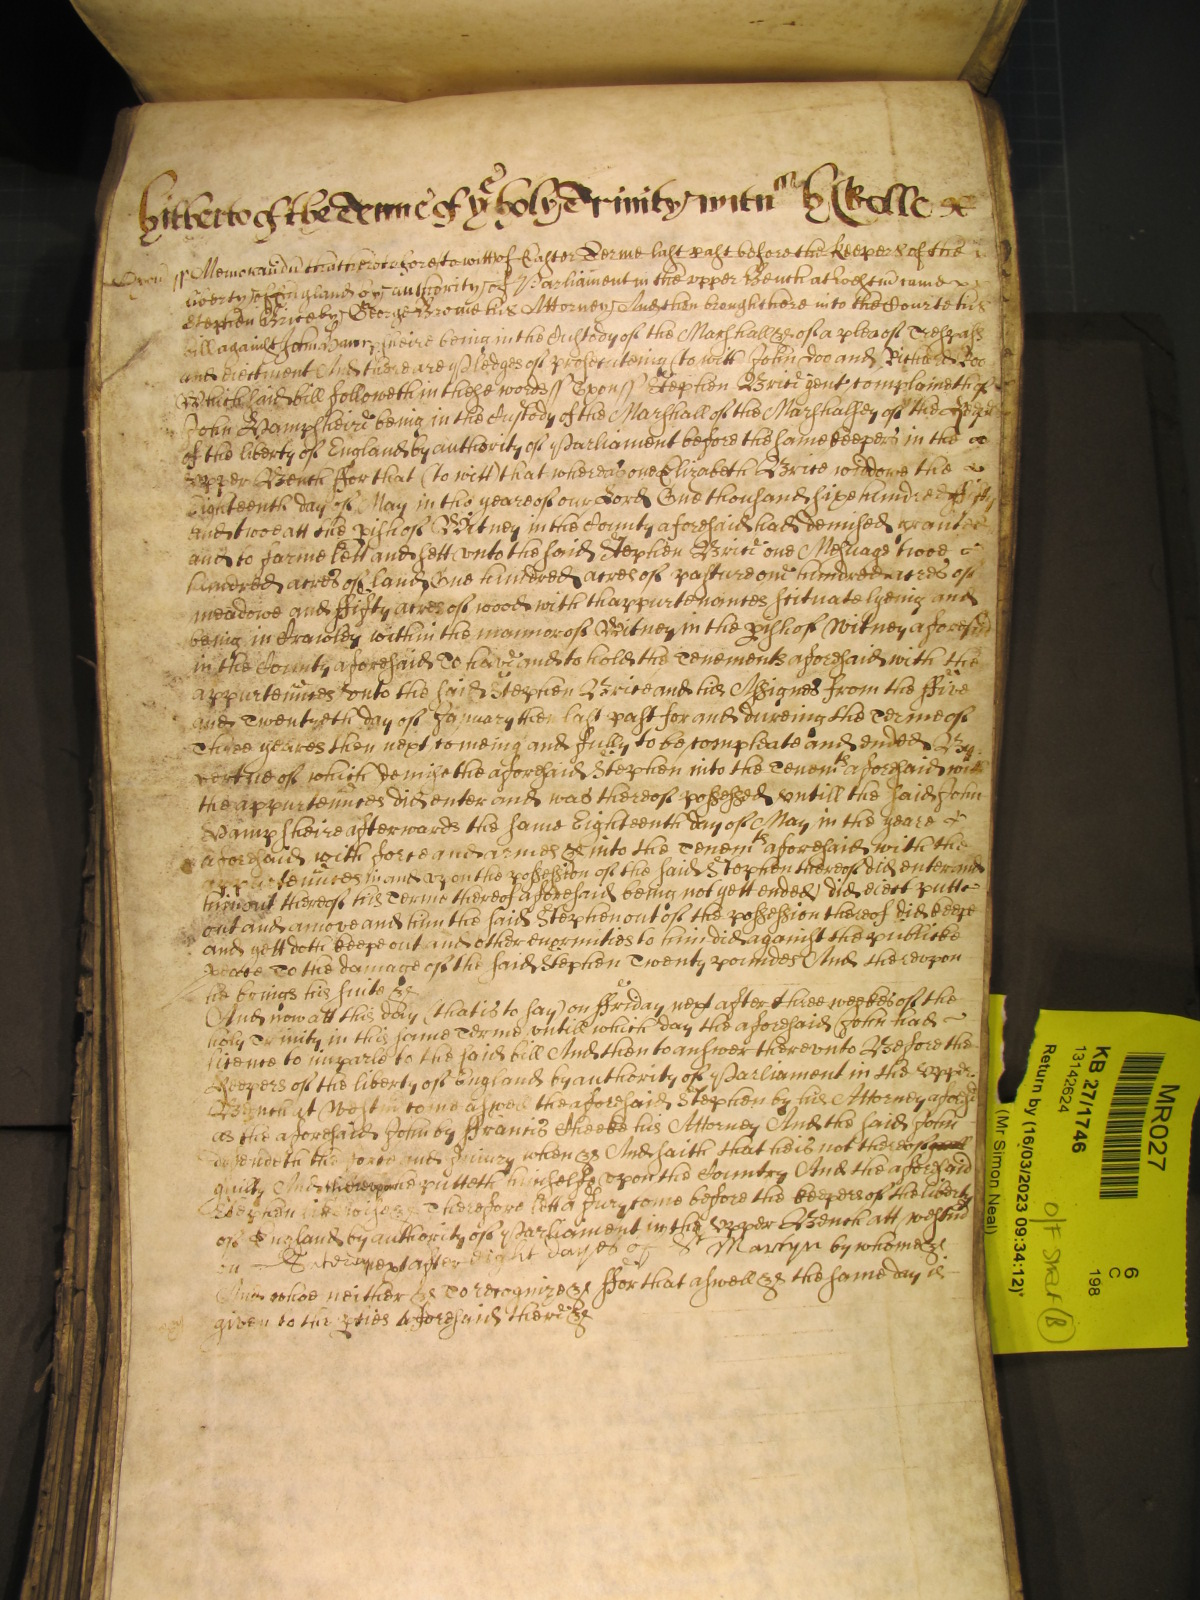 hitherto of the Terme of ye holy Trinity witn
Oxon ss Memorandu that heretofore to witt of Easter Terme last past before the keepers of the
liberty of England by authority of Parliament in the upper Bench at Westm came
Stephen Brice by George Browne his Attorney And then brought here into the Court his
bill against John being in the Custody of the Marshall &c of a plea of Trespass
and eiectment And there are pledges of prosecuteing (to witt) John Doo and Richard Roo
Which said bill followeth in these words ss Oxon ss Stephen Brice gent complaineth of
John Vampsheire being in the Custody of the Marshall of the Marshalsey of the
of the liberty of England by authority of Parliament before the same keepers in the
upper Bench ffor that (to witt) that whereas one Elizabeth Brice widdowe the
Eighteenth day of May in the yeare of our Lord One thousand sixe hundred fifty
and twoe att the pish of Witney in the County aforesaid had demised granted
and to farme lett and sett unto the said Stephen Brice one Mesuage twoe
hundred acres of land One hundred acres of pasture one hundred acres of
meadowe and ffifty acres of wood with thappurtenances scituate lyeing and
being in Crawley within the mannor of Witney in the pish of Witney aforesaid
in the County aforesaid To have and to hold the Tenements aforesaid with the
appurtennces unto the said Stephen Brice and his Assignes from the ffive
and Twentyeth day of January then last past for and dureing the Terme of
Three yeares then next comeing and fully to be compleate and ended By
vertue of which demise the aforesaid Stephen into the Tenemts aforesaid with
the appurtennces did enter and was thereof possessed untill the said John
Vampsheire afterwards the same Eighteenth day of May in the yeare
aforesaid with force and armes &c into the Tenemts aforesaid with the
appurtennces in and upon the possession of the said Stephen thereof did enter and
him out thereof his Terme thereof aforesaid being not yett ended) did eiect putt
out and amove and him the said Stephen out of the possession thereof did keepe
and yett doth keepe out and other enormities to him did against the publicke
peace To the damage of the said Stephen Twenty poundes And thereupon
he brings his suite &c
And now att this day (that is to say) on ffriday next after three weekes of the
holy Trinity in this same Terme untill which day the aforesaid John had
licence to imparle to the said bill And then to answer thereunto Before the
keepers of the liberty of England by authority of Parliament in the upper
Bench at Westm come aswell the aforesaid Stephen by his Attorney aforesd
as the aforesaid John by ffrancis Cheeke his Attorney And the said John
defendeth the force and iniury when &c And saith that he is not thereof
guilty And thereupon he putteth himselfe upon the Country And the aforesaid
Stephen likewise &c Therefore lett a Jury come before the keepers of the liberty
of England by authority of Parliament in the upper Bench att Westm
on next after eight dayes of St Martyn by whome &c
And whoe neither &c To recognize &c ffor that aswell &c the same day is
given to the pties aforesaid there &c
MR027
KB 27/1746
13142624
Return by (16/03/2023 09:34:12)'
(Mr Simon Neal)
6
C
198